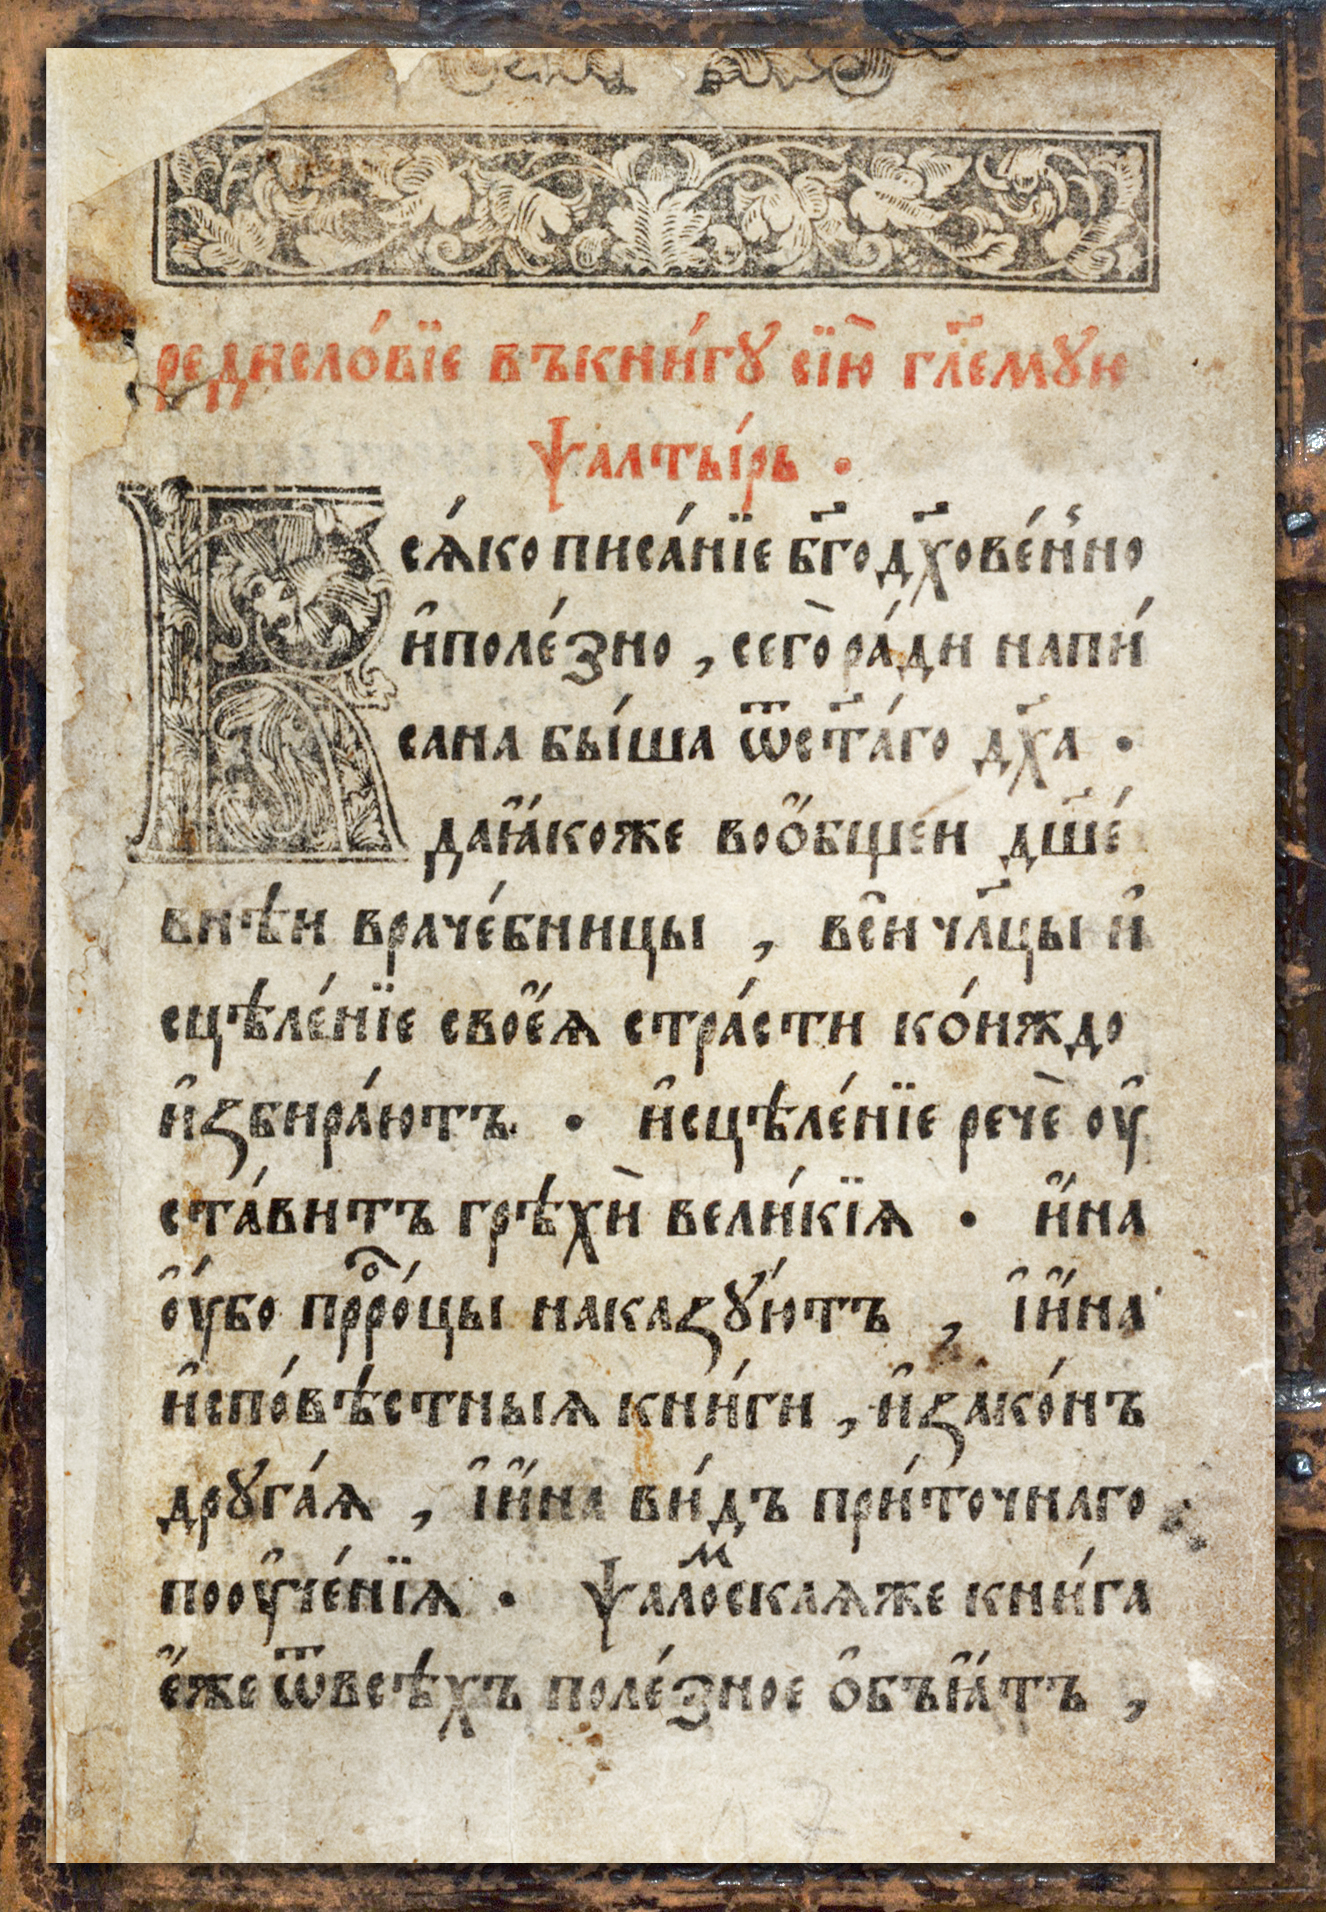 редисло́вїе въкни́гꙋ сїю̀ гл҃емꙋю
ѱалты́рь ·
Всѧ́ко писа́нїе бг҃одх҃ове́нно
и҆поле́зно , сего̀ ра́ди напи́
сана бы́ша ѿст҃а́го дх҃а ·
даꙗ҆́коже воѻ҆́бщеи дш҃е́
внѣи враче́бницы , вси҆ чл҃цы и҆
сцѣле́нїе свое҆́ѧ стра́сти ко́иждо
и҆збира́ютъ · и҆сцѣле́нїе речѐ ѹ҆
ста́витъ грѣхѝ вели́кїѧ · и҆́на
ѹ҆́бо прⷪ҇ро́цы наказꙋ́ютъ , і҆и҆́на
и҆спо́вѣстныѧ кни́ги , и҆зако́нъ
дрꙋга́ѧ , і҆и҆́на ви́дъ при́точнаго
поѹ҆че́нїѧ · ѱалоⷨскаѧже кни́га
є҆́же ѿвсѣ́хъ поле́зное ѻ҆бъꙗ҆́тъ ,